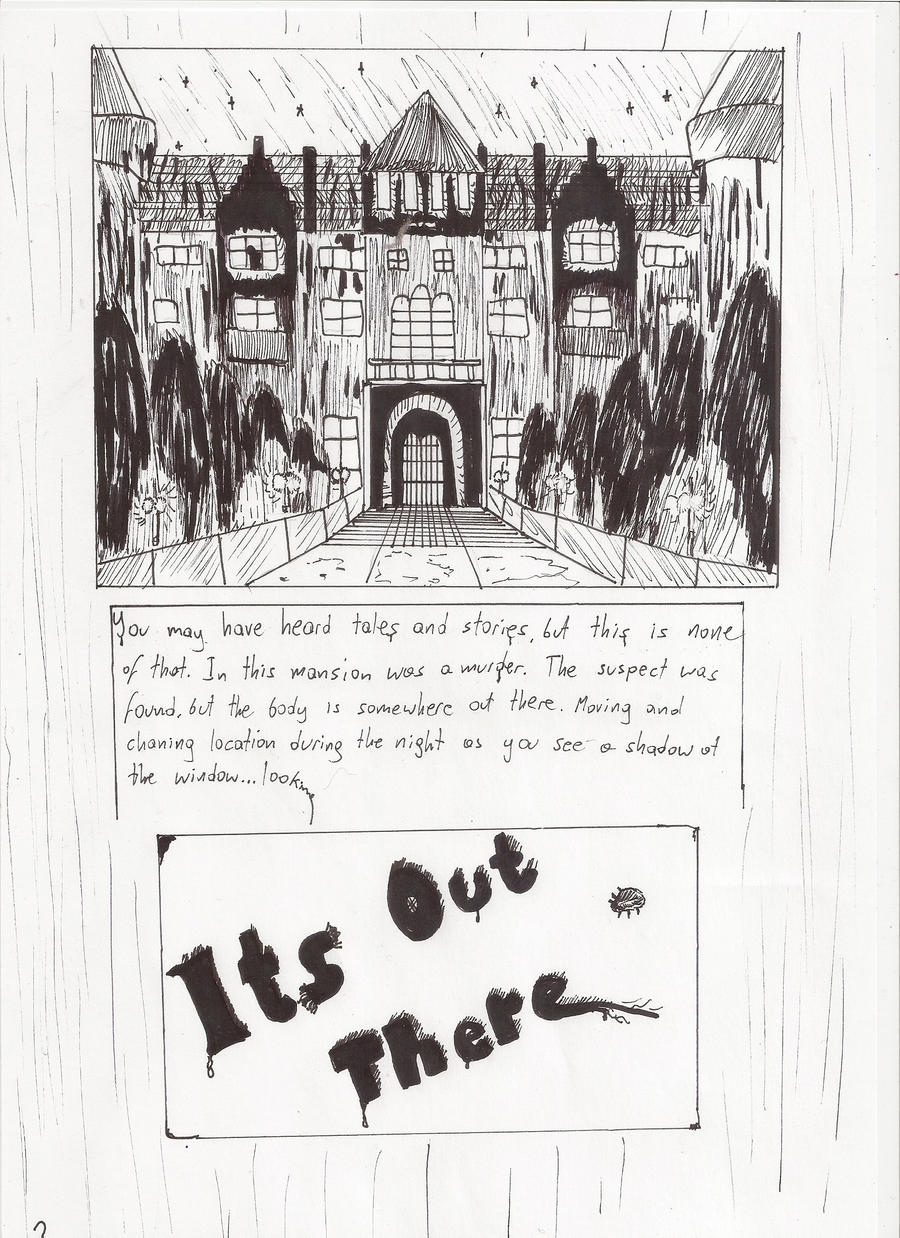 You may have heard tales and stories, but this is none
of that. In this mansion was a murder. The suspect was
found, but the body is somewhere out there. Moving and
chaning location during the night as you see a shadow at
the window...looking
Its Out
There
2